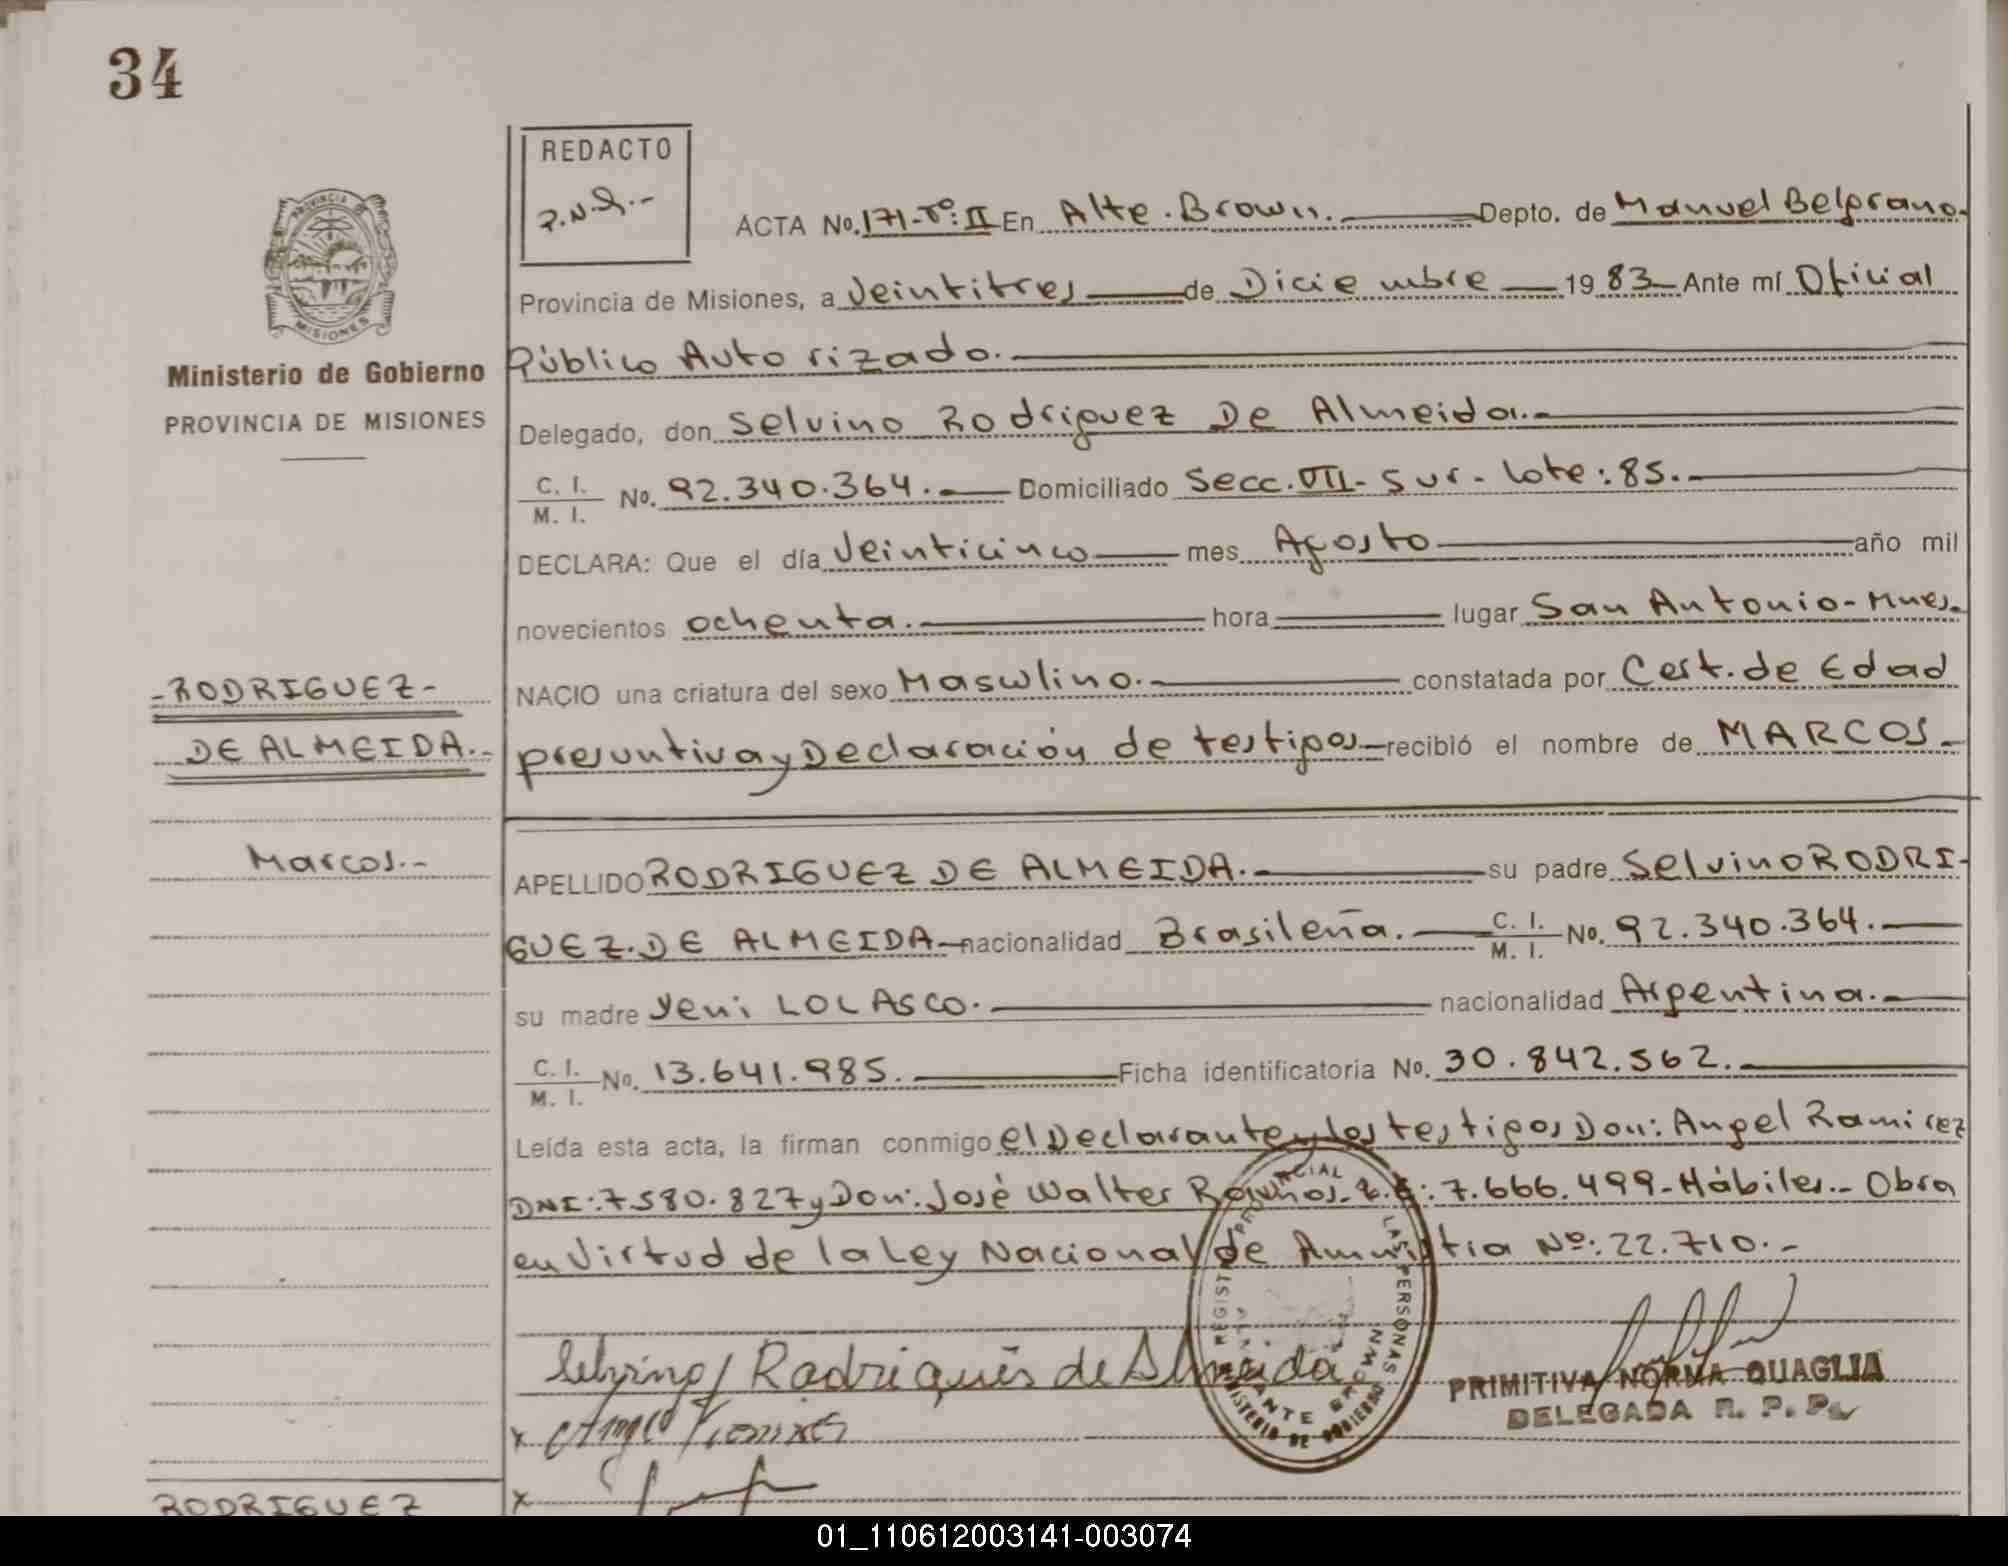 34
REDACTO
P.N.Q.-
ACTA No. 171-Tº:II En Alte. Brown. Depto. de Manuel Belgrano.
Provincia de Misiones, a Veintitres de Diciembre 1983 Ante mí Oficial
Público Autorizado.
Delegado, don Selvino Rodriguez De Almeida.-
C. I.
M. I. No. 92.340.364. Domiciliado Secc. VII- Sur- Lote: 85.-
DECLARA: Que el día Veinticinco mes Agosto año mil
novecientos Ochenta. hora lugar San Antonio-Mnes.
NACIO una criatura del sexo Masculino. constatada por Cert. de Edad
presuntiva y Declaración de testigos recibió el nombre de MARCOS-
APELLIDO RODRIGUEZ DE ALMEIDA. su padre Selvino RODRI-
GUEZ DE ALMEIDA nacionalidad Brasileña. C. I.
M. I. No. 92.340.364.
su madre Yeni LOLASCO. nacionalidad Argentina.
C. I.
M. I. No. 13.641.985. Ficha identificatoria No. 30.842.562.
Leída esta acta, la firman conmigo el Declarante y los testigos Don: Angel Ramirez
DNI: 7.580.827 y Don: José Walter L.E: 7.666.499-Hábiles.- Obra
en Virtud de la Ley Nacional de Amnistia Nº: 22.710.-
Rodriguês de Almeida
x
x
PRIMITIVA NORMA QUAGLIA
DELEGADA R. P. P.
REGIST PROVINCIAL LAS PERSONAS
ANTE BROWN
MINISTERIO DE GOBIERNO
PROVINCIA DE
MISIONES
Ministerio de Gobierno
PROVINCIA DE MISIONES
-RODRIGUEZ-
DE ALMEIDA.-
Marcos.-
RODRIGUEZ
01_110612003141-003074